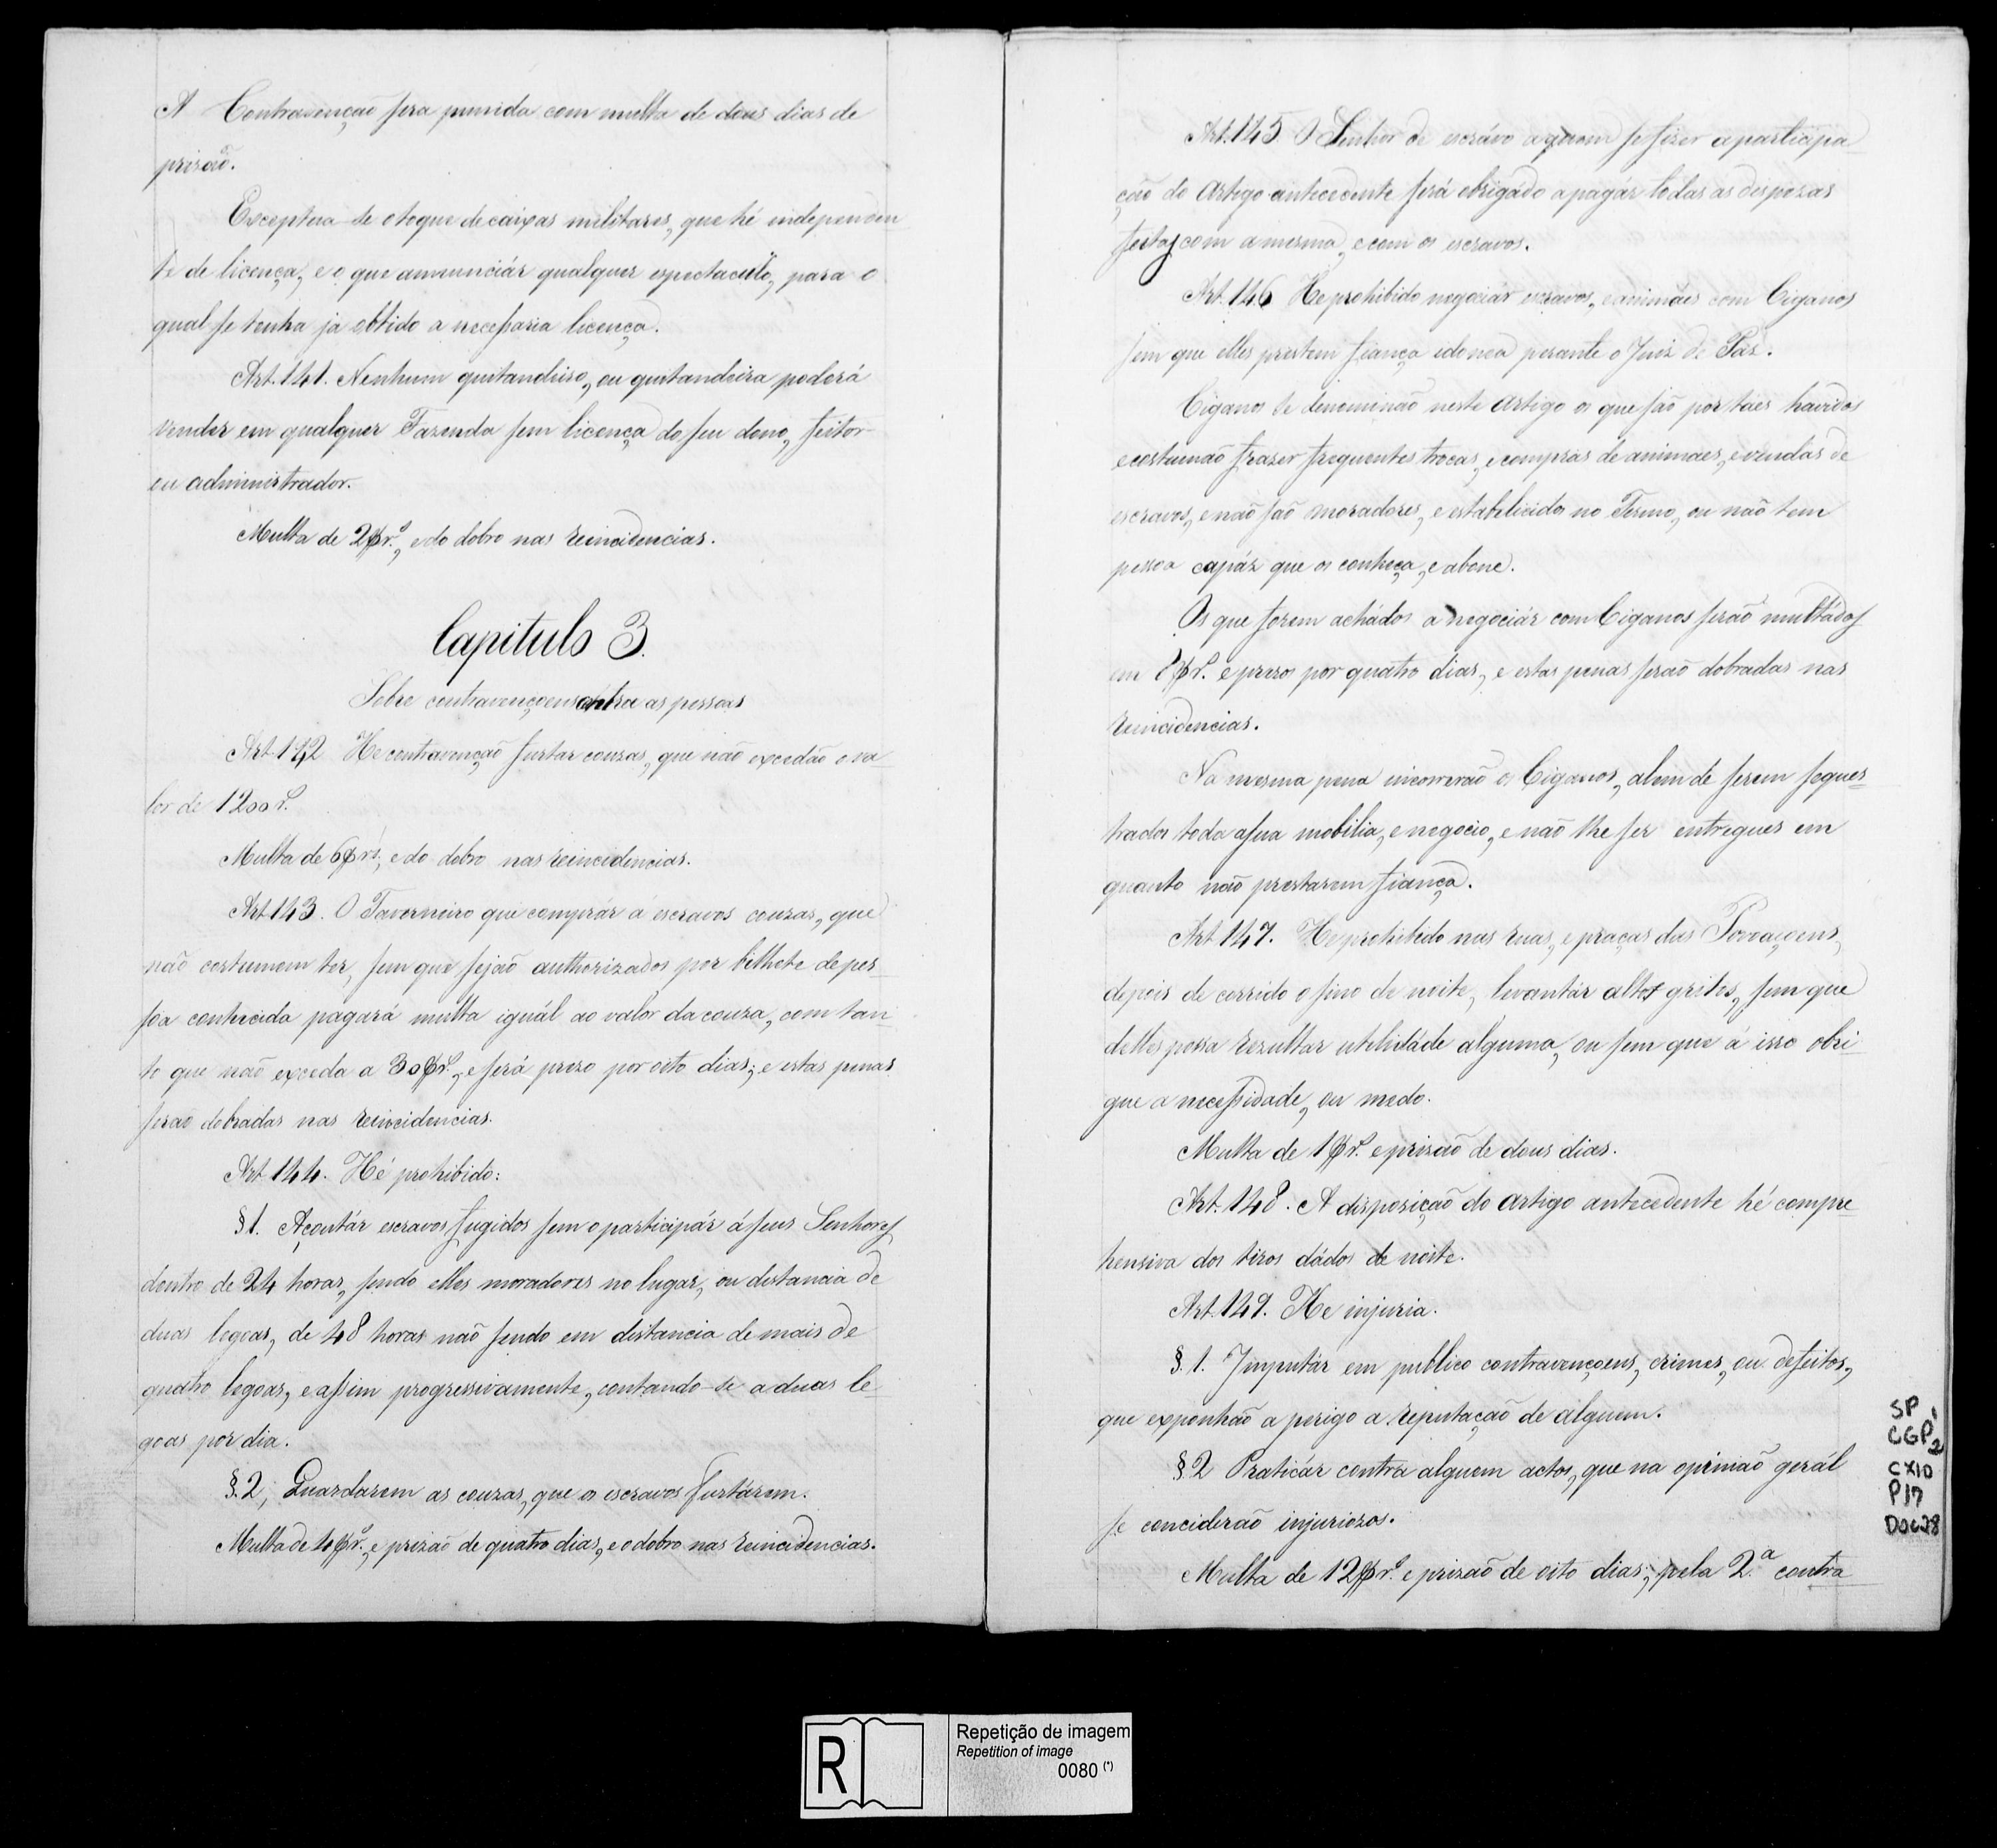 A Contravenção sera punida com multa de dous dias de
prizão.
Exceptua-se o toque de caixas militares, que hé independen
te de licença, e o que annunciár qualquer espectaculo, para o
qual se tenha ja obtido a necessaria licença.
Art. 141. Nenhum quitandeiro, ou quitandeira poderá
vender em qualquer Fazenda sem licença do seu dono, feitor
ou administrador.
Multa de 2$rs., e do dobro nas reincidencias.
Capitulo 3.
Sobre contravençoens contra as pessoas
Art 142 He contravenção furtar couzas, que não excedão o va-
lor de 1200 rs.
Multa de 6$rs; e do dobro nas reincidencias.
Art 143. O Taverneiro que comprár a escravos couzas, que
não costumem ter, sem que sejão authorizados por bilhete de pes-
soa conhecida pagará multa iguál ao valor da couza, com tan-
to que não exceda a 30$rs., e será prezo por oito dias; e estas penas
serão dobradas nas reincidencias.
Art 144. Hé prohibido:
§1. Açoutár escravos fugidos sem o participár á seus Senhores
dentro de 24 horas, sendo elles moradores no lugar, ou distancia de
duas legoas, de 48 horas não sendo em distancia de mais de
quatro legoas, e assim progressivamente, contando-se a duas le
goas por dia.
§.2, Guardarem as couzas, que os escravos furtárem.
Multa de 4$rs., e prizão de quatro dias, e o dobro nas reincidencias.
Art. 145. O Senhor de escrávo a quem se fizer a participa
ção do Artigo antecedente será obrigádo a pagár todas as despezas
feitas com a mesma, e com os escravos.
Art. 146 He prohibido negociár escravos, e animáes com Ciganos
sem que elles prestem fiança idonea perante o Juiz de Paz.
Ciganos se denominão neste Artigo os que são por táes havidos
e costumão frazer frequentes trocas, e compras de animáes, e vendas de
escravos, e não são moradores, e estabelicidos no Termo, ou não tem
pessoa capáz que os conheça, e abone.
Os que forem achádos a negociár com Ciganos serão multádos
em 8$rs. e prezos por quatro dias, e estas penas serão dobradas nas
reincidencias.
Na mesma pena incorrerão os Ciganos, alem de serem seques-
trados toda a sua mobilia, e negocio, e não lhe ser entregues em
quanto não prestarem fiança.
Art 147. He prohibido nas ruas, e praças das Povoaçoens,
depois de corrido o sino de noite, levantár altos gritos, sem que
delles possa rezultar utilidáde alguma, ou sem que á isso obri-
gue a necessidade, ou medo.
Multa de 1$rs. e prizão de dous dias.
Art. 148. A disposição do artigo antecedente hé compre-
hensiva dos tiros dádos de noite.
Art. 149. He injuria.
§.1. Imputár em publico contravençoens, crimes, ou defeitos,
que exponhão a perigo a reputação de alguem.
§2 Praticár contra alguem actos, que na opinião gerál
se conciderão injuriozos.
Multa de 12$rs. e prizão de oito dias; pela 2.a contra
SP 1
CGP 2
CX10
P17
DOC28
R
Repetição de imagem
Repetition of image
0080 (*)